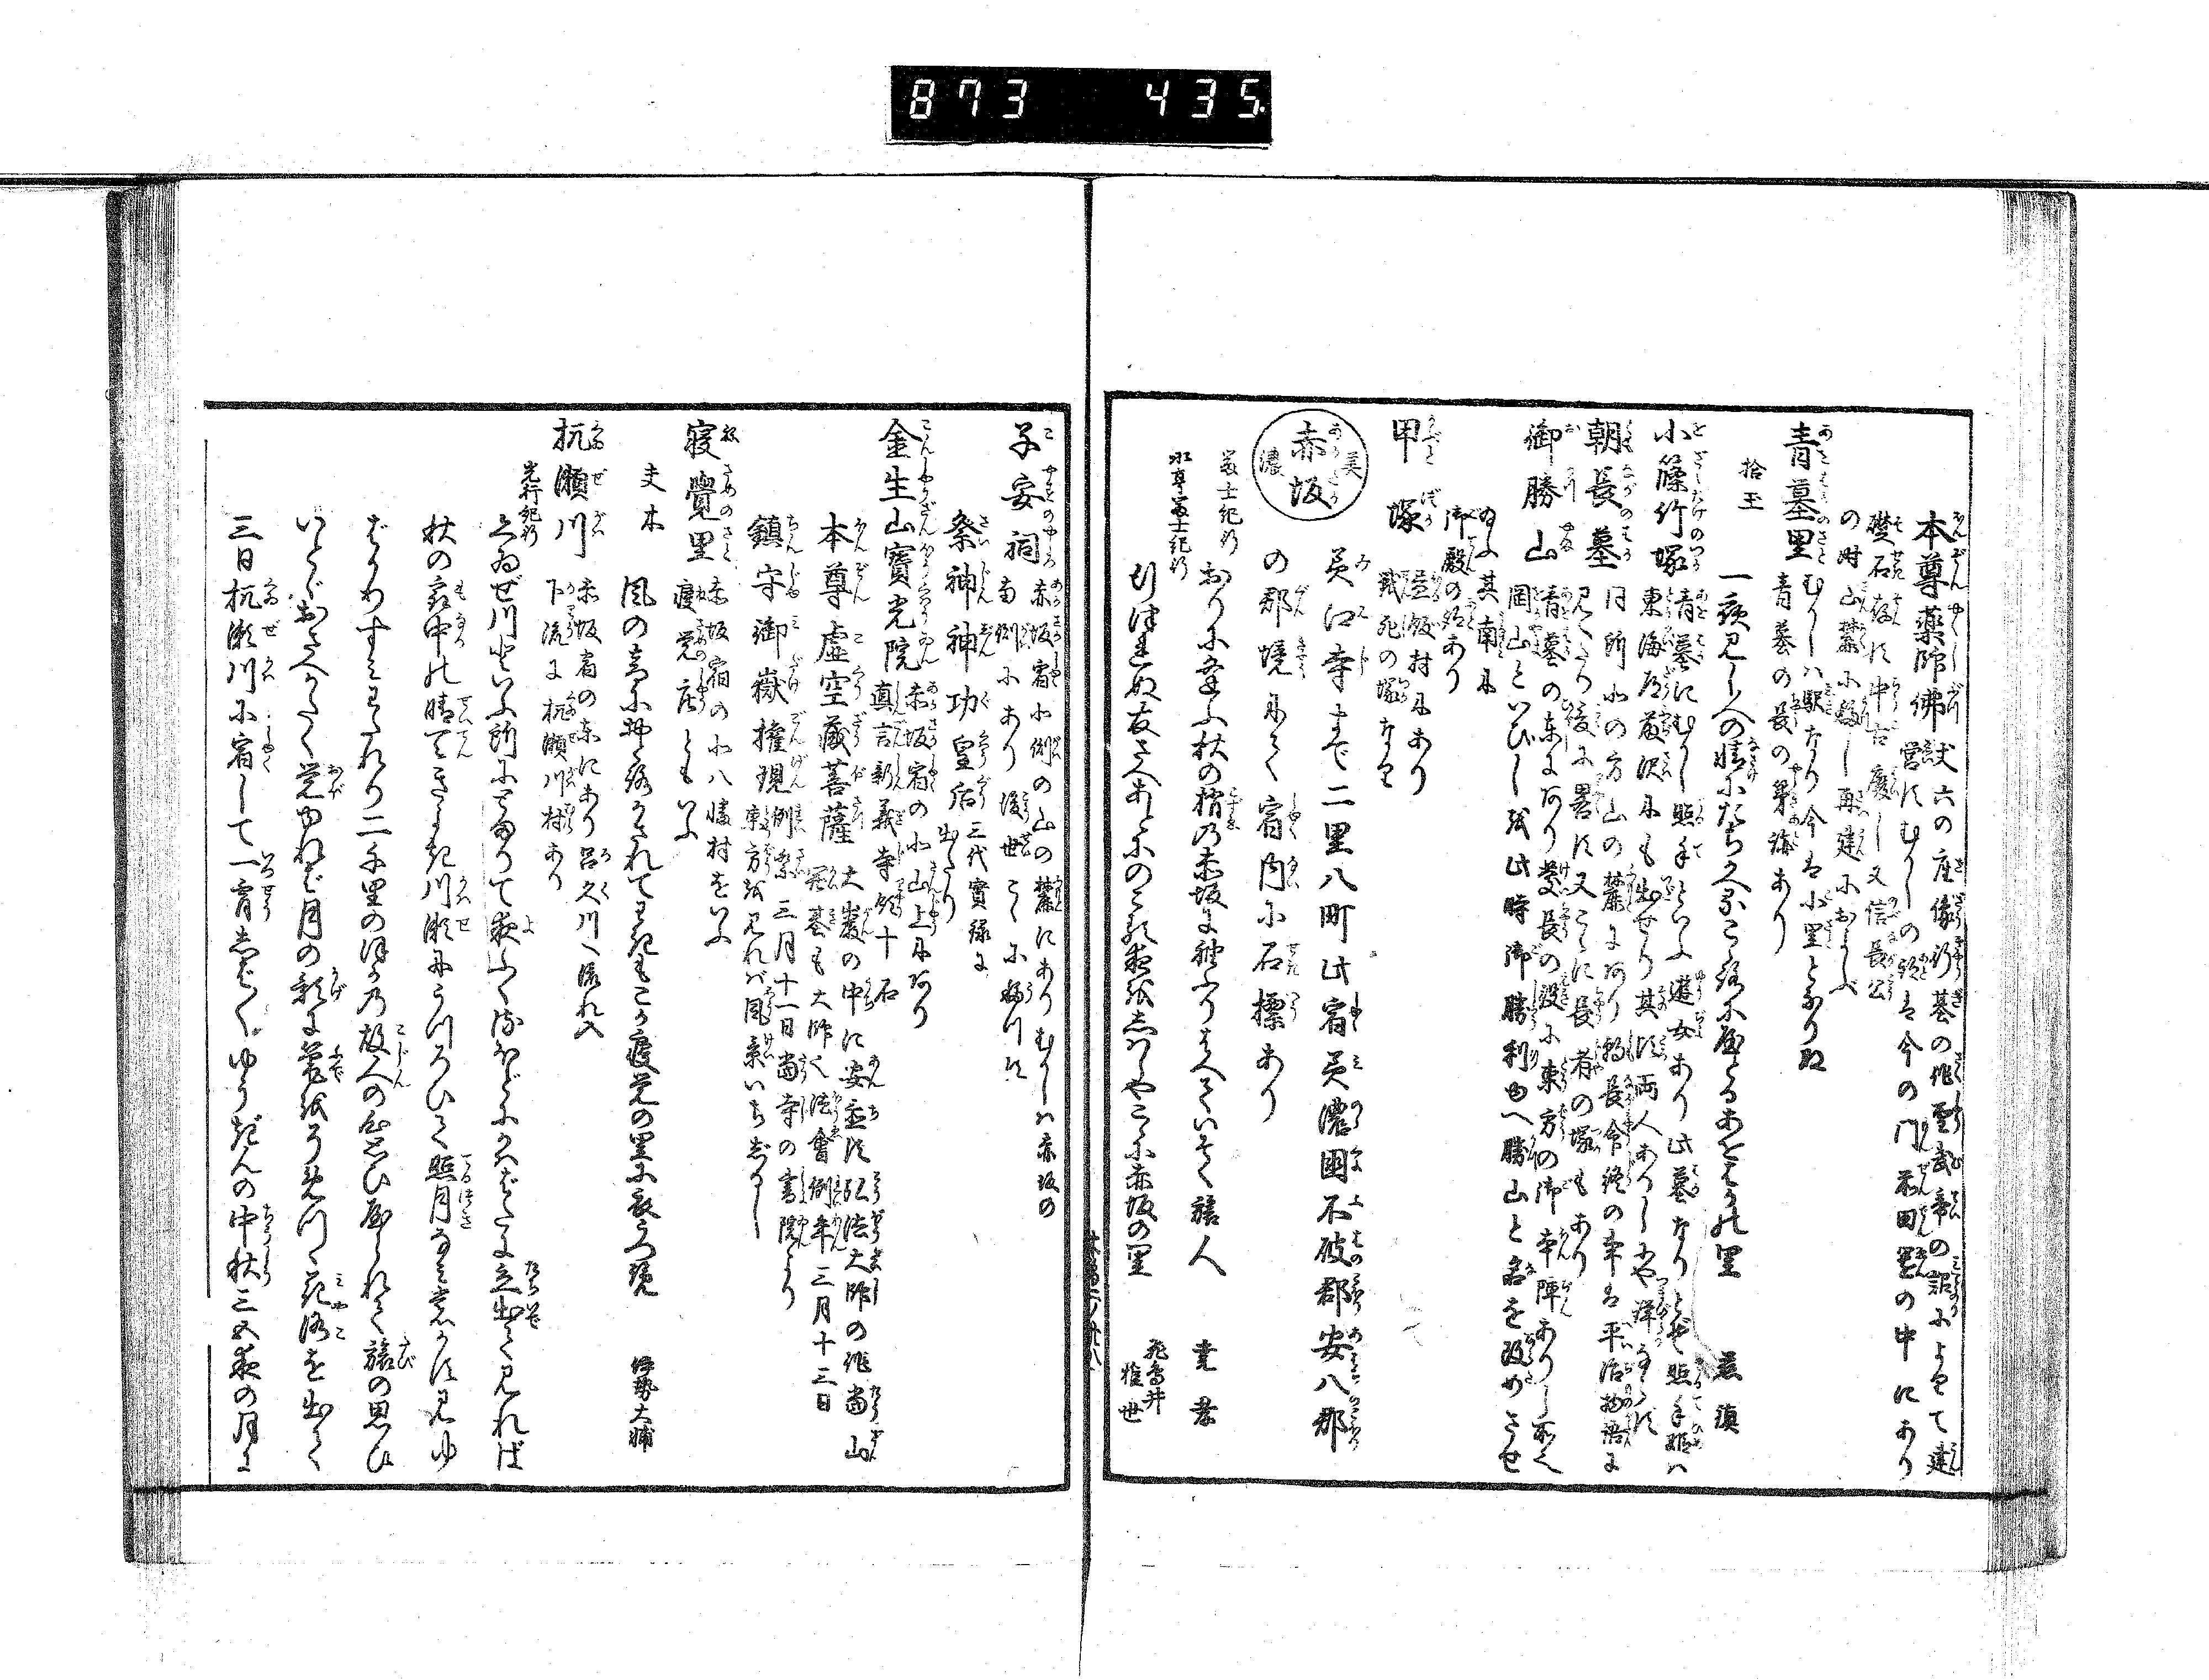 873 435
本尊薬師佛 丈六の座像行基の作聖武帝の詔によりて建
営すむかしの跡は今の門前田墅の中にあり
礎石故に存中古廃し又信長公
の時山麓に移し再建におよぶ
青墓里 むかしは駅なり今は小里となりぬ
青墓の長の舊跡あり
拾玉
一夜見し人の情にたちかへるこゝろに屋どるあをはかの里 慈鎮
小篠竹塚 青墓にむかし照手といふ遊女あり此墓なりとぞ照手姫は
東海道藤沢にも出せり其頃両人ありしにや詳ならず
朝長墓 同所北の方山の麓にあり朝長命終の事は平治物語に
見へたり故に畧す又こゝに長者の塚もあり
御勝山 青墓の東にあり慶長の役に東方の御本陣ありし所也
岡山といひしを此時御勝利ゆへ勝山と名を改めさせ
給ふ其南に
御殿の跡あり
甲塚 益飯村にあり
戦死の塚なり
美濃 赤坂
美江寺まで二里八町此宿美濃国不破郡安八郡
の郡境にて宿内に石標あり
冨士紀行
おりに逢ふ秋の梢の赤坂に袖ふりはへていそぐ旅人 尭孝
永享冨士紀行
打つれぬ友さへあとにのこる夜をしはしやこゝに赤坂の里 飛鳥井雅世
子安祠 赤坂宿北側の山の麓にありむかしは赤坂の
南側にあり後世こゝに移つす
祭神神功皇后 三代實録に出たり
金生山寶光院 赤坂宿の北山上にあり
真言新義寺領十石
本尊虚空蔵菩薩 大巌の中に安置す弘法大師の作當山
開基も大師也法會例年三月十三日
鎮守御嶽権現 例祭三月十一日當寺の書院より
東方を見れば風景いちじるし
寝覺里 赤坂宿の北八幡村をいふ
寝覚庄ともいふ
夫木
風の音におとろかされてわれもこか寝覚の里に衣うつ覧 伊勢大輔
杭瀬川 赤坂宿の東にあり呂久川へ流れ入
下流に杭瀬川村あり
光行紀行
くゐぜ川といふ所にとまりて夜ふくるほどにかはばたに立出て見れば
秋の最中の晴天きよき川瀬にうつろひて照月なみも数かず見ゆ
ばかりすみわたれり二千里の外の故人の心思ひ屋られて旅の思ひ
いとゞおさへかたく覚ゆれば月の影に筆をそめつゝ花洛を出て
三日杭瀬川に宿して一宵しば〱ゆうぎんの中秋三五夜の月に